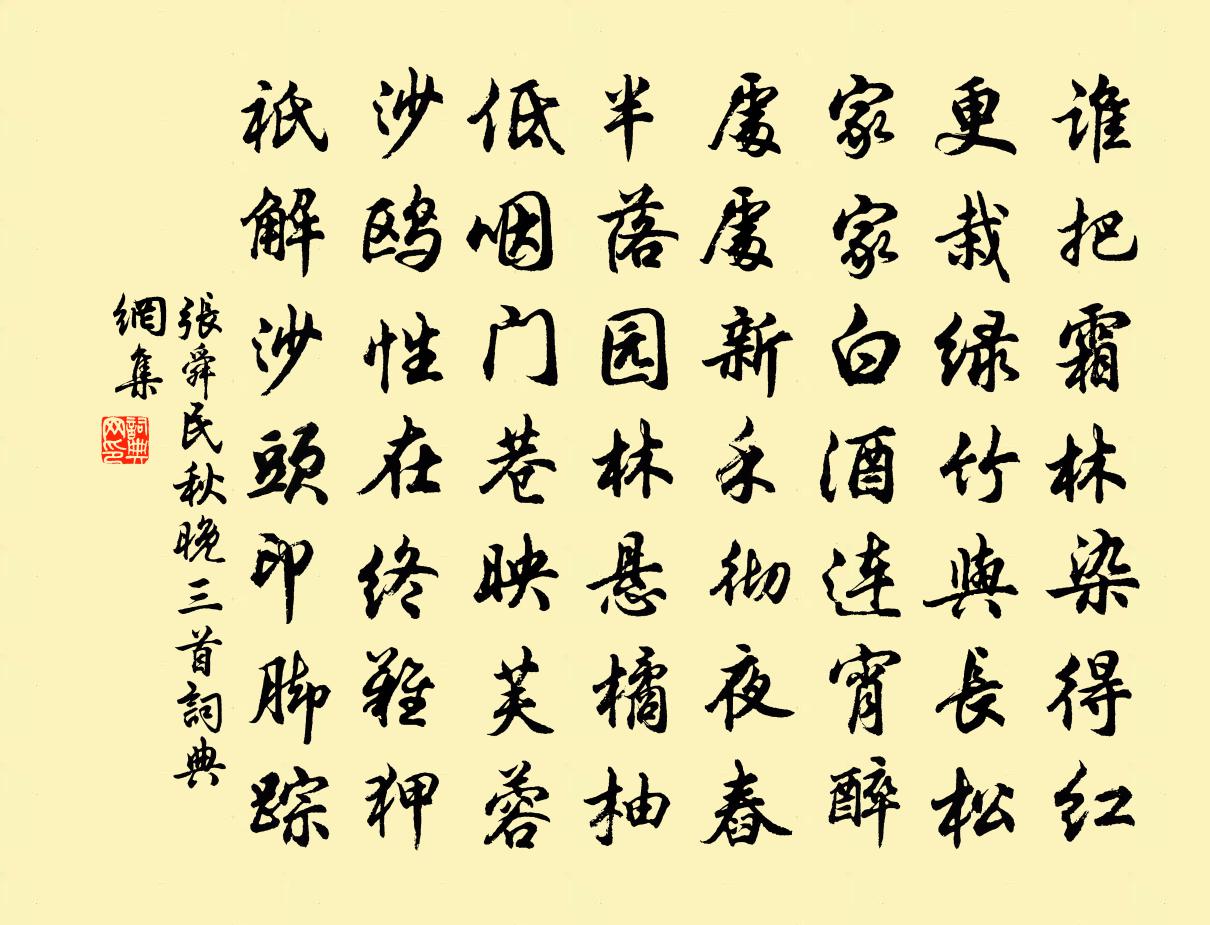 谁把霜林染得红
更栽绿竹與長松
家家白酒连宵醉
處處新禾彻夜舂
半落园林悬橘柚
低咽门巷映芙蓉
沙鸥性在终難狎
祇解沙頭印脚踪
張舜民秋晚三首詞典
網集
詞典